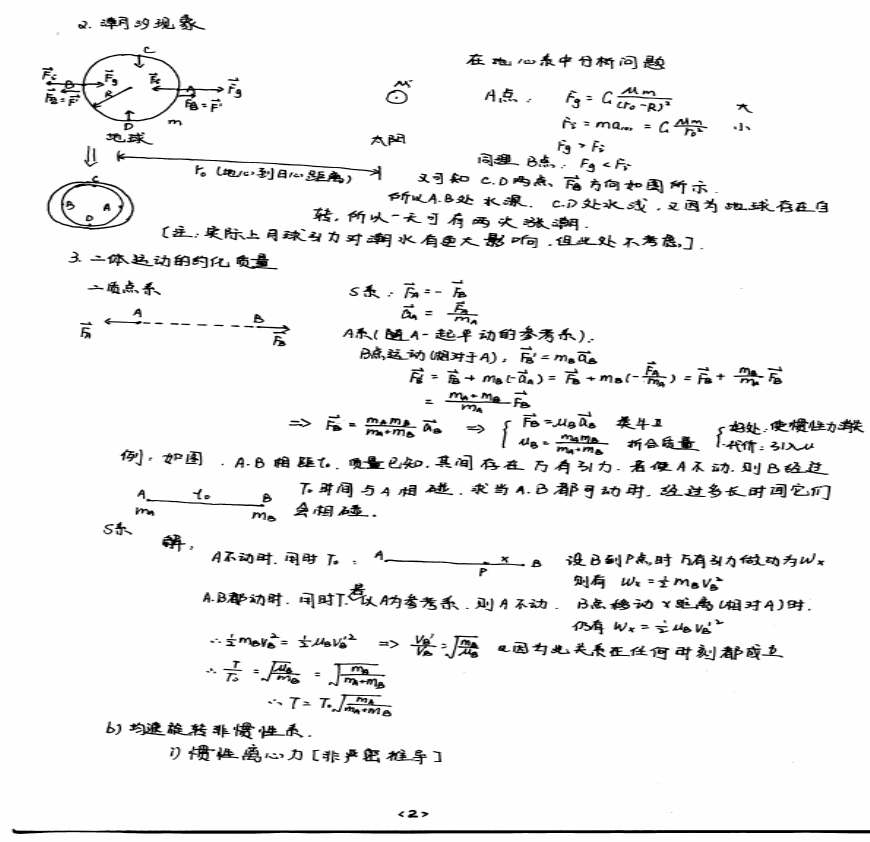 2. 潮汐现象
在地心系中分析问题
C
F⃗i B F⃗g F⃗i A F⃗g
F⃗B=F⃗' R F⃗B=F⃗'
D m
地球
M
太阳
A点: Fg = G Mm/(r₀-R)² 大
Fi = ma = G Mm/r₀² 小
Fg > Fi
r₀ (地心到日心距离)
同理 B点: Fg < Fi
C
B A
D
又可知 C.D两点, F⃗B方向如图所示.
所以A.B处水深. C.D处水浅. 又因为地球存在自
转, 所以一天可有两次涨潮.
[注: 实际上月球引力对潮水有更大影响, 但此处不考虑.].
3. 二体运动的约化质量
二质点系
A B
F⃗A F⃗B
S系: F⃗A = - F⃗B
a⃗A = F⃗A/mA
A系(随A一起平动的参考系):
B点运动(相对于A), F⃗B' = mB a⃗B
F⃗B' = F⃗B + mB(-a⃗A) = F⃗B + mB(-F⃗A/mA) = F⃗B + mB/mA F⃗B
= (mA+mB)/mA F⃗B
=> F⃗B = mAmB/(mA+mB) a⃗B => { F⃗B = μB a⃗B 类牛Ⅱ { 好处: 使惯性力消失
μB = mAmB/(mA+mB) 折合质量 代价: 引入μ
例: 如图. A.B相距r₀. 质量已知. 其间存在万有引力. 若使A不动. 则B经过
T₀时间与A相碰. 求当A.B都可动时. 经过多长时间它们
会相碰.
A r₀ B
mA mB
S系
解:
A不动时. 用时T₀: A P x B 设B到P点时万有引力做功为Wx
则有 Wx = ½ mB VB²
A.B都动时. 用时T. 若以A为参考系. 则A不动. B点移动x距离(相对A)时.
仍有 Wx = ½ μB VB'²
∴ ½ mB VB² = ½ μB VB'² => VB'/VB = √(mB/μB) 又因为此关系在任何时刻都成立
∴ T/T₀ = √(μB/mB) = √(mA/(mA+mB))
∴ T = T₀ √(mA/(mA+mB))
b) 均速旋转非惯性系.
i) 惯性离心力 [非严密推导]
<2>